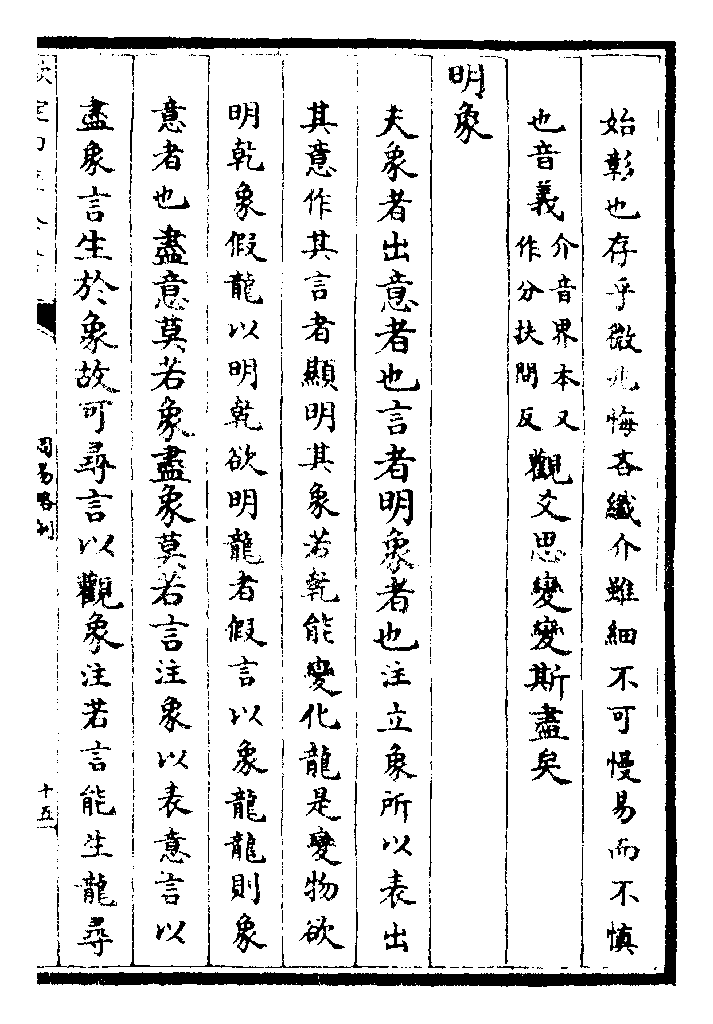 始彰也存乎微兆悔吝纖介雖細不可慢易而不慎
也音義介音界本又作分扶問反觀爻思變變斯盡矣
明象
夫象者出意者也言者明象者也注立象所以表出
其意作其言者顯明其象若乾能變化龍是變物欲
明乾象假龍以明乾欲明龍者假言以象龍龍則象
意者也盡意莫若象盡象莫若言注象以表意言以
盡象言生於象故可尋言以觀象注若言能生龍尋
周易略例
十五